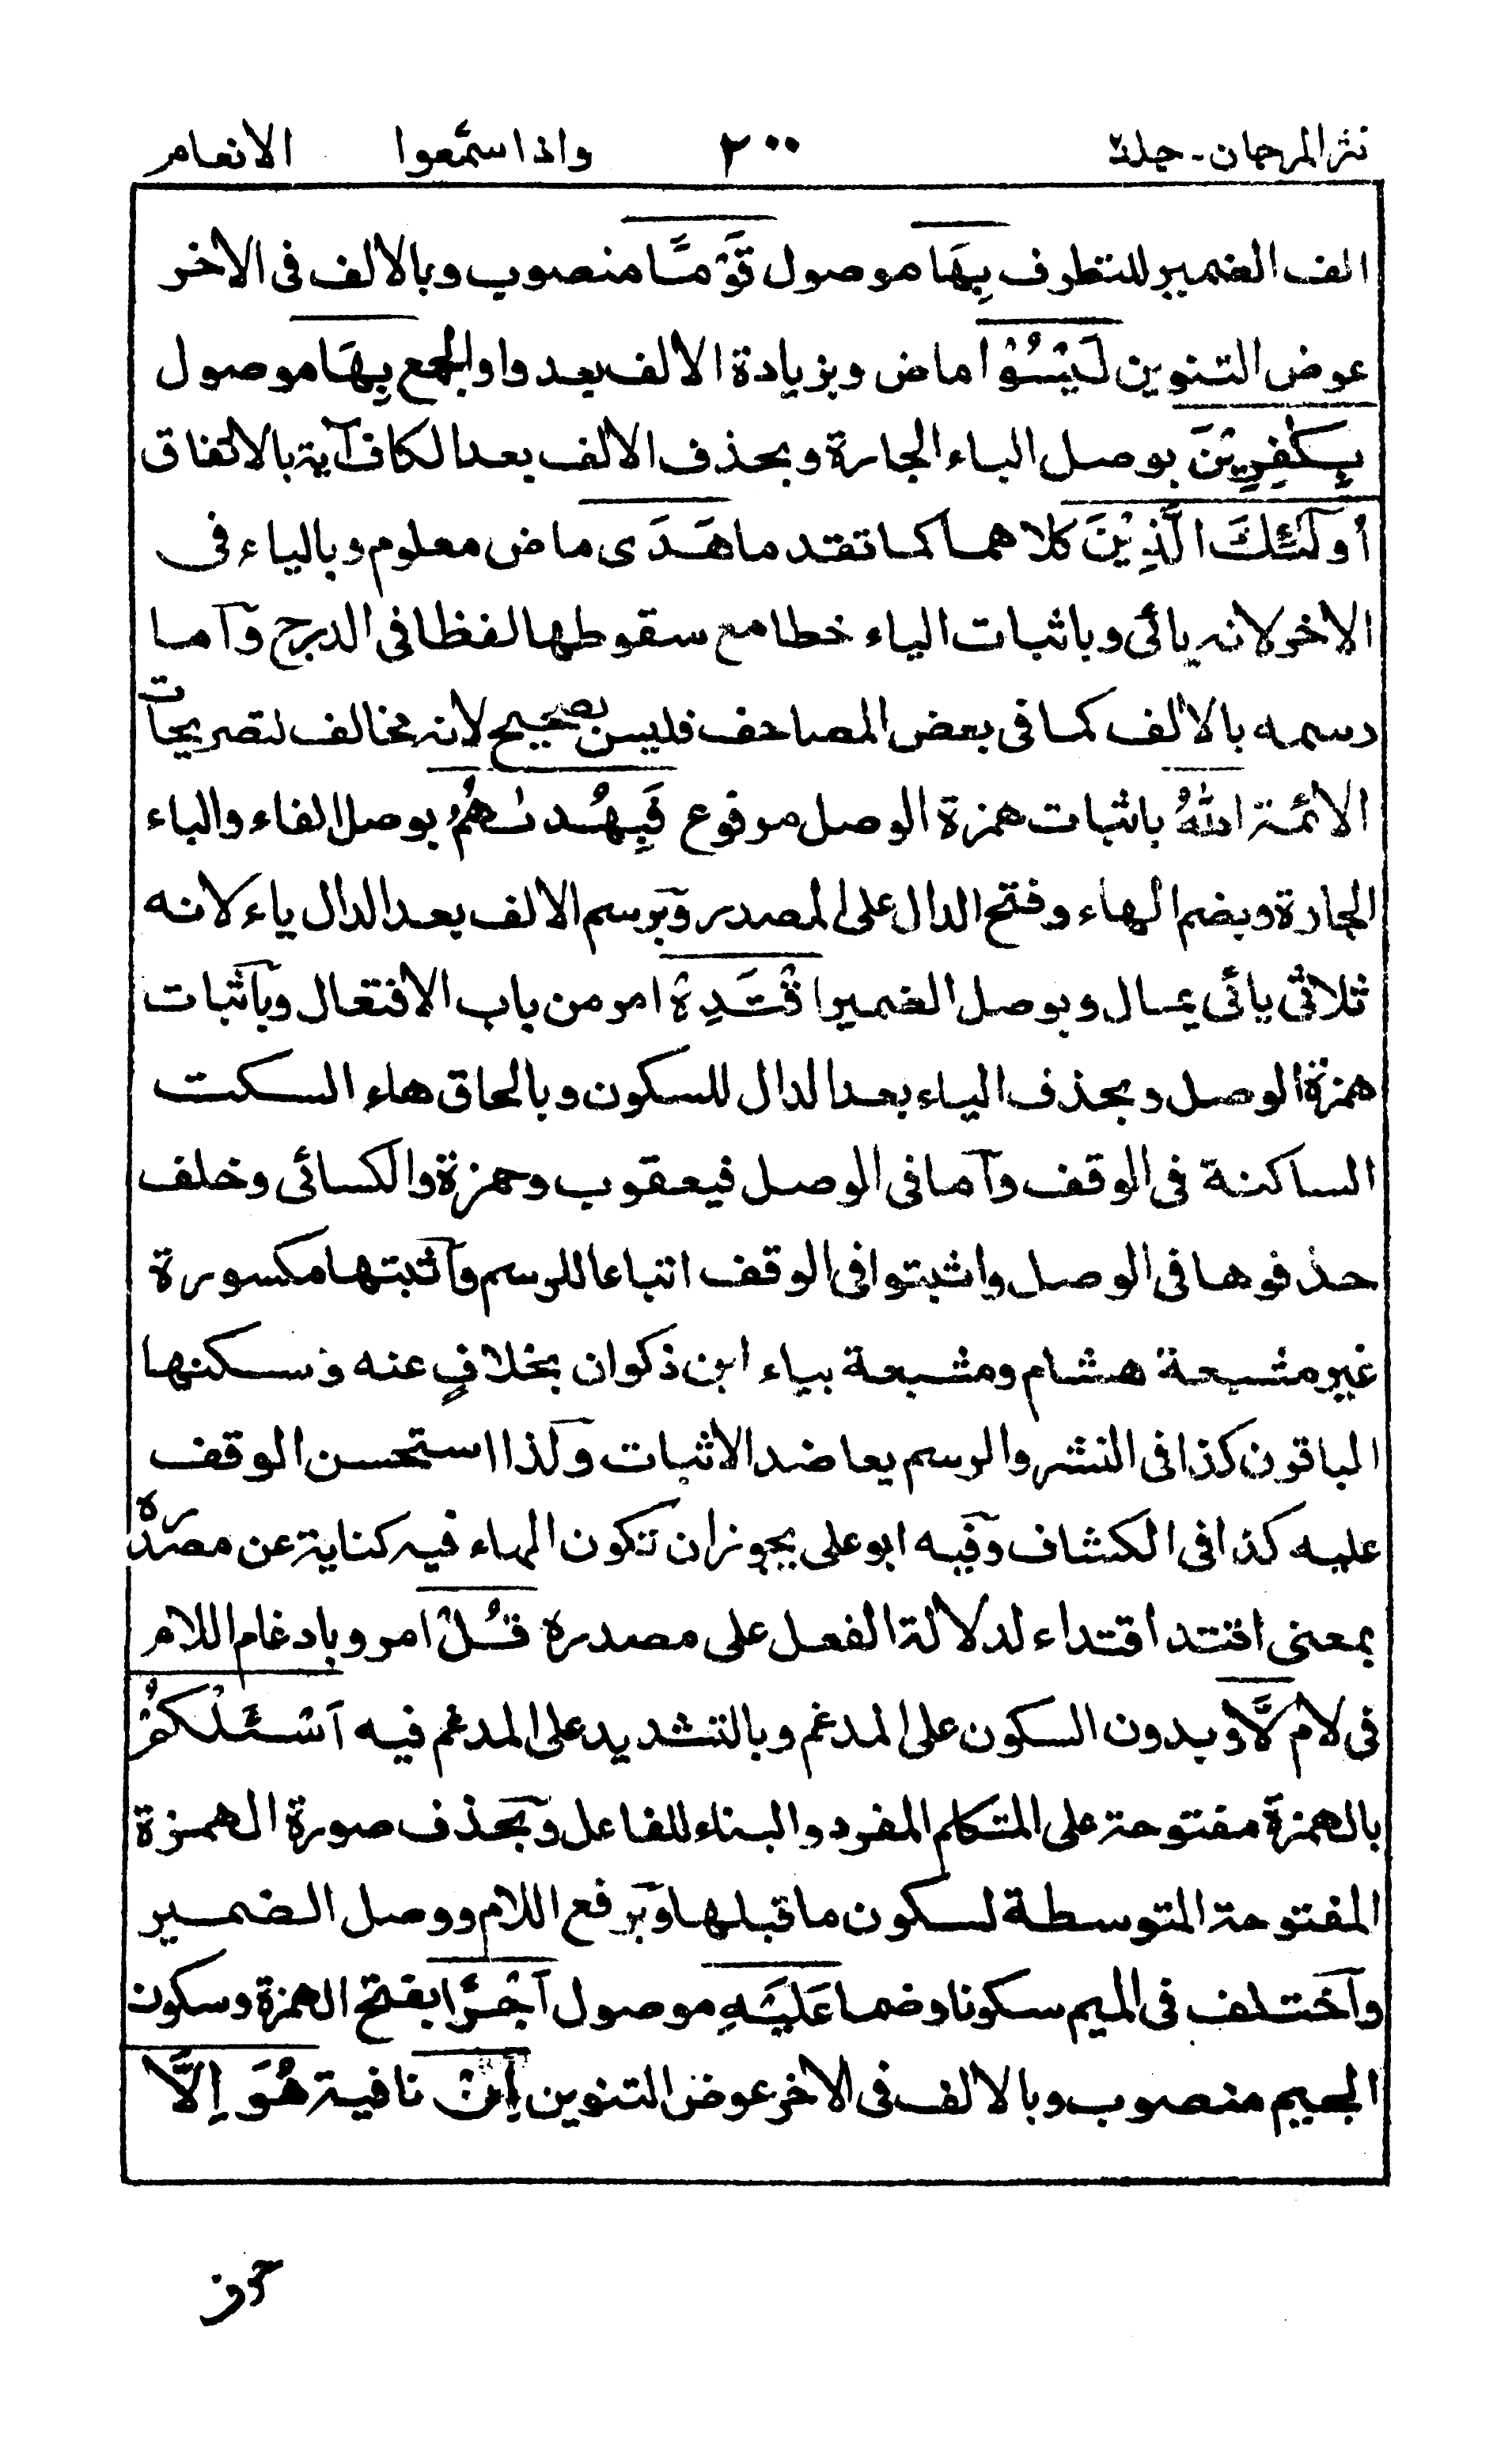 نثر المرجان - جلد ٢٠٠ واذا سمّعوا الانعام
الف الضمير للتطرف بِهَا موصول قَوْمًا منصوب وبالالف فى الاخر
عوض التنوين لَيْسُوْا ماض وبزيادة الالف بعد واو الجمع بِهَا موصول
بِكٰفِرِيْنَ بوصل الباء الجارة وبحذف الالف بعد الكاف آية بالاتفاق
أُولٰٓئِكَ الَّذِيْنَ كلاهما كما تقدما هَدَى ماض معلوم وبالياء فى
الاخر لانه يائى وباثبات الياء خطا مع سقوطها لفظا فى الدرج وآما
رسمه بالالف كما فى بعض المصاحف فليس بصحيح لانه مخالف لتصريحات
الائمة اللهُ باثبات همزة الوصل مرفوع فَبِهُدٰىهُمُ بوصل الفاء والباء
الجارة وبضم الهاء وفتح الدال على المصدر وبرسم الالف بعد الدال ياء لانه
ثلاثى يائى يمال وبوصل الضمير اقْتَدِهْ امر من باب الافتعال وبآثبات
همزة الوصل وبحذف الياء بعد الدال للسكون وبالحاق هاء السكت
الساكنة فى الوقف وآما فى الوصل فيعقوب وحمزة والكسائى وخلف
حذفوها فى الوصل واثبتوا فى الوقف اتباعا للرسم وآثبتها مكسورة
غير مشبعة هشام ومشبعة بياء ابن ذكوان بخلافٍ عنه وسكنها
الباقون كذا فى النشر والرسم يعاضد الاثبات ولذا استحسن الوقف
عليه كذا فى الكشاف وفيه ابو على يجوز ان تكون الهاء فيه كناية عن مصدره
بمعنى اقتد اقتداء لدلالة الفعل على مصدره قُلْ امر وبادغام اللام
فى لام لَّا وبدون السكون على المدغم وبالتشديد على المدغم فيه اَسْـَٔلُكُمْ
بالهمزة مفتوحة على المتكلم المفرد والبناء للفاعل وبحذف صورة الهمزة
المفتوحة المتوسطة لسكون ما قبلها وبرفع اللام ووصل الضمير
وآختلف فى الميم سكونا وضما عَلَيْهِ موصول اَجْرًا بفتح الهمزة وسكون
الجيم منصوب وبالالف فى الاخر عوض التنوين اِنْ نافية هُوَ اِلَّا